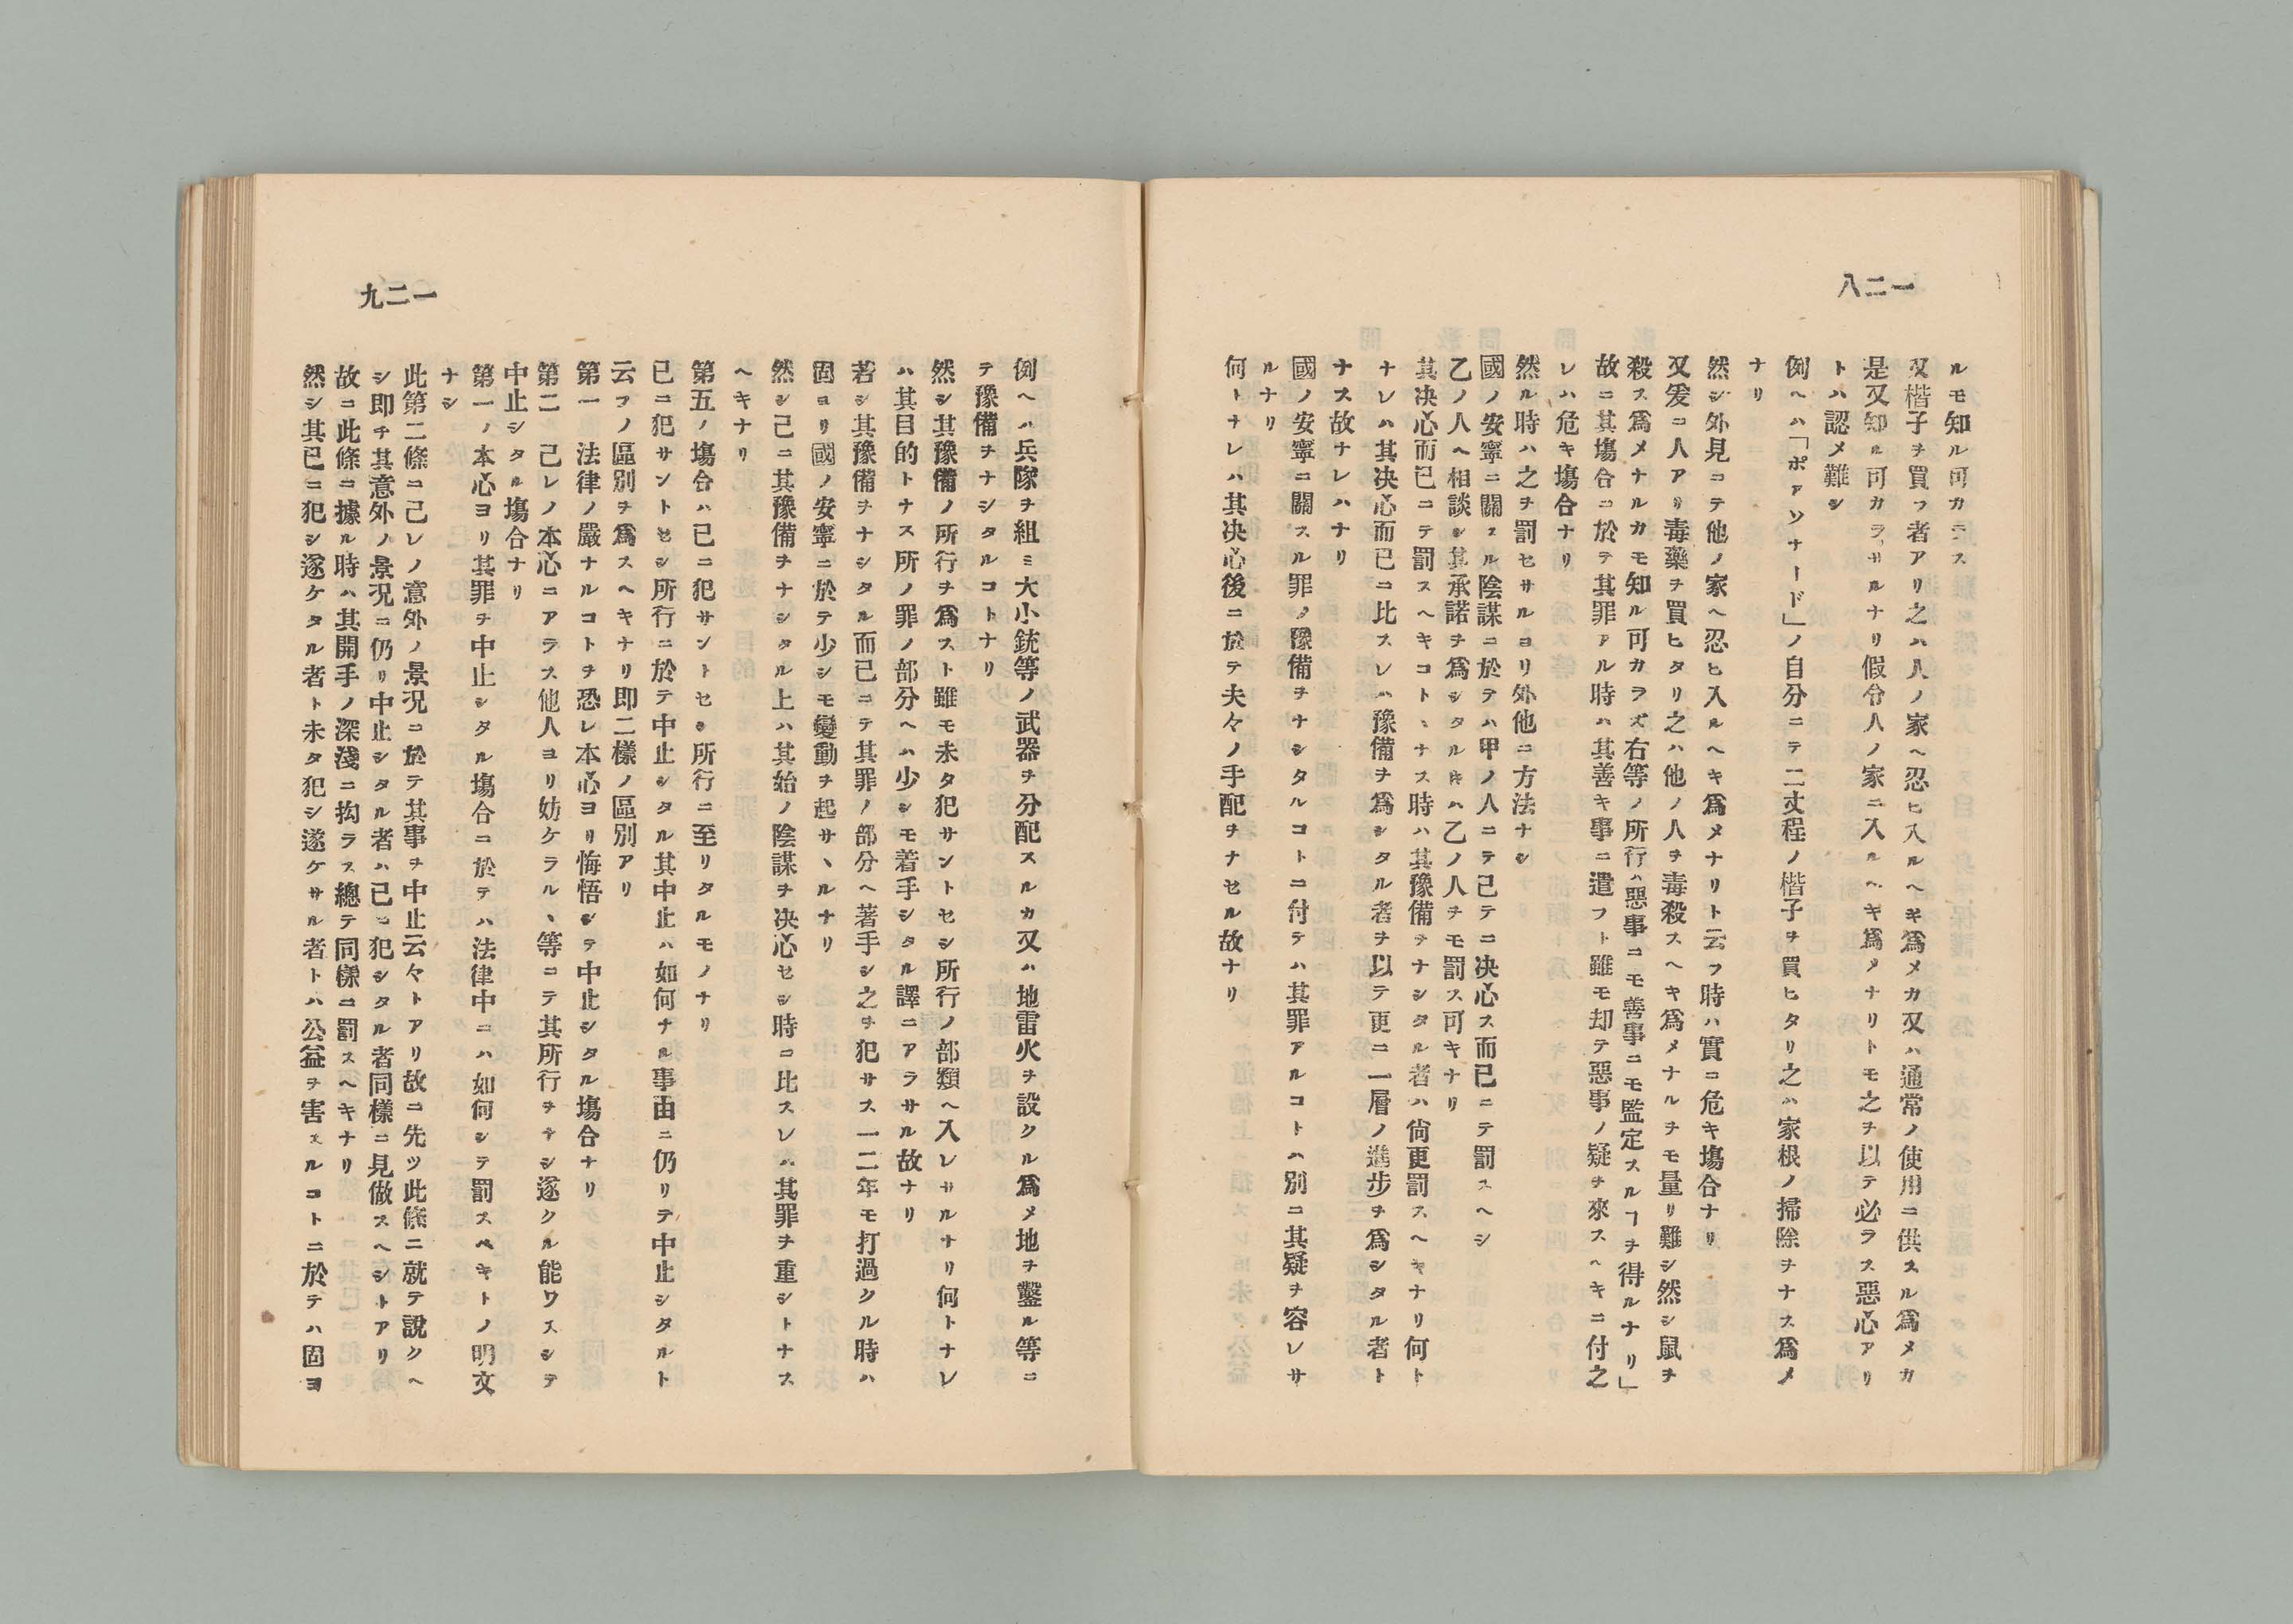 一二八
ルモ知ル可カラス
又楷子ヲ買フ者アリ之ハ人ノ家ヘ忍ヒ入ルヘキ爲メカ又ハ通常ノ使用ニ供スル爲メカ
是又知ル可カラサルナリ假令人ノ家ニ入ルヘキ爲メナリトモ之ヲ以テ必ラス惡心アリ
トハ認メ難シ
例ヘハ「ポアソナード」ノ自分ニテ二丈程ノ楷子ヲ買ヒタリ之ハ家根ノ掃除ヲナス爲メ
ナリ
然シ外見ニテ他ノ家ヘ忍ヒ入ルヘキ爲メナリト云フ時ハ實ニ危キ塲合ナリ
又爰ニ人アリ毒藥ヲ買ヒタリ之ハ他ノ人ヲ毒殺スヘキ爲メナルヲモ量リ難シ然シ鼠ヲ
殺ス爲メナルカモ知ル可カラズ右等ノ所行ハ惡事ニモ善事ニモ監定スルヿヲ得ルナリ」
故ニ其塲合ニ於テ其罪アル時ハ其善キ事ニ遣フト雖モ却テ惡事ノ疑ヲ來スヘキニ付之
レハ危キ塲合ナリ
然ル時ハ之ヲ罰セサルヨリ外他ニ方法ナシ
國ノ安寧ニ關スル陰謀ニ於テハ甲ノ人ニテ己テニ决心ス而已ニテ罰スヘシ
乙ノ人ヘ相談シ其承諾ヲ爲シタル𪜈ハ乙ノ人ヲモ罰ス可キナリ
其决心而已ニテ罰スヘキコトヽナス時ハ其豫備ヲナシタル者ハ尙更罰スヘキナリ何ト
ナレハ其决心而已ニ比スレハ豫備ヲ爲シタル者ヲ以テ更ニ一層ノ進步ヲ爲シタル者ト
ナス故ナレハナリ
國ノ安寧ニ關スル罪ノ豫備ヲナシタルコトニ付テハ其罪アルコトハ別ニ其疑ヲ容レサ
ルナリ
何トナレハ其决心後ニ於テ夫々ノ手配ヲナセル故ナリ
一二九
例ヘハ兵隊ヲ組ミ大小銃等ノ武器ヲ分配スルカ又ハ地雷火ヲ設クル爲メ地ヲ鑿ル等ニ
テ豫備ヲナシタルコトナリ
然シ其豫備ノ所行ヲ爲スト雖モ未タ犯サントセシ所行ノ部類ヘ入レサルナリ何トナレ
ハ其目的トナス所ノ罪ノ部分ヘハ少シモ着手シタル譯ニアラサル故ナリ
若シ其豫備ヲナシタル而已ニテ其罪ノ部分ヘ著手シ之ヲ犯サス一二年モ打過クル時ハ
固ヨリ國ノ安寧ニ於テ少シモ變動ヲ起サヽルナリ
然シ己ニ其豫備ヲナシタル上ハ其始ノ陰謀ヲ决心セシ時ニ比スレハ其罪ヲ重シトナス
ヘキナリ
第五ノ塲合ハ已ニ犯サントセシ所行ニ至リタルモノナリ
已ニ犯サントセシ所行ニ於テ中止シタル其中止ハ如何ナル事由ニ仍リテ中止シタルト
云フノ區別ヲ爲スヘキナリ即二樣ノ區別アリ
第一 法律ノ嚴ナルコトヲ恐レ本心ヨリ悔悟シテ中止シタル塲合ナリ
第二 己レノ本心ニアラス他人ヨリ妨ケラルヽ等ニテ其所行ヲナシ遂クル能ワスシテ
中止シタル塲合ナリ
第一ノ本心ヨリ其罪ヲ中止シタル塲合ニ於テハ法律中ニハ如何シテ罰スベキトノ明文
ナシ
此第二條ニ己レノ意外ノ景况ニ於テ其事ヲ中止云々トアリ故ニ先ツ此條ニ就テ說クヘ
シ即チ其意外ノ景况ニ仍リ中止シタル者ハ已ニ犯シタル者同樣ニ見做スヘシトアリ
故ニ此條ニ據ル時ハ其開手ノ深淺ニ拘ラス總テ同樣ニ罰スヘキナリ
然シ其已ニ犯シ遂ケタル者ト未タ犯シ遂ケサル者トハ公益ヲ害スルコトニ於テハ固ヨ